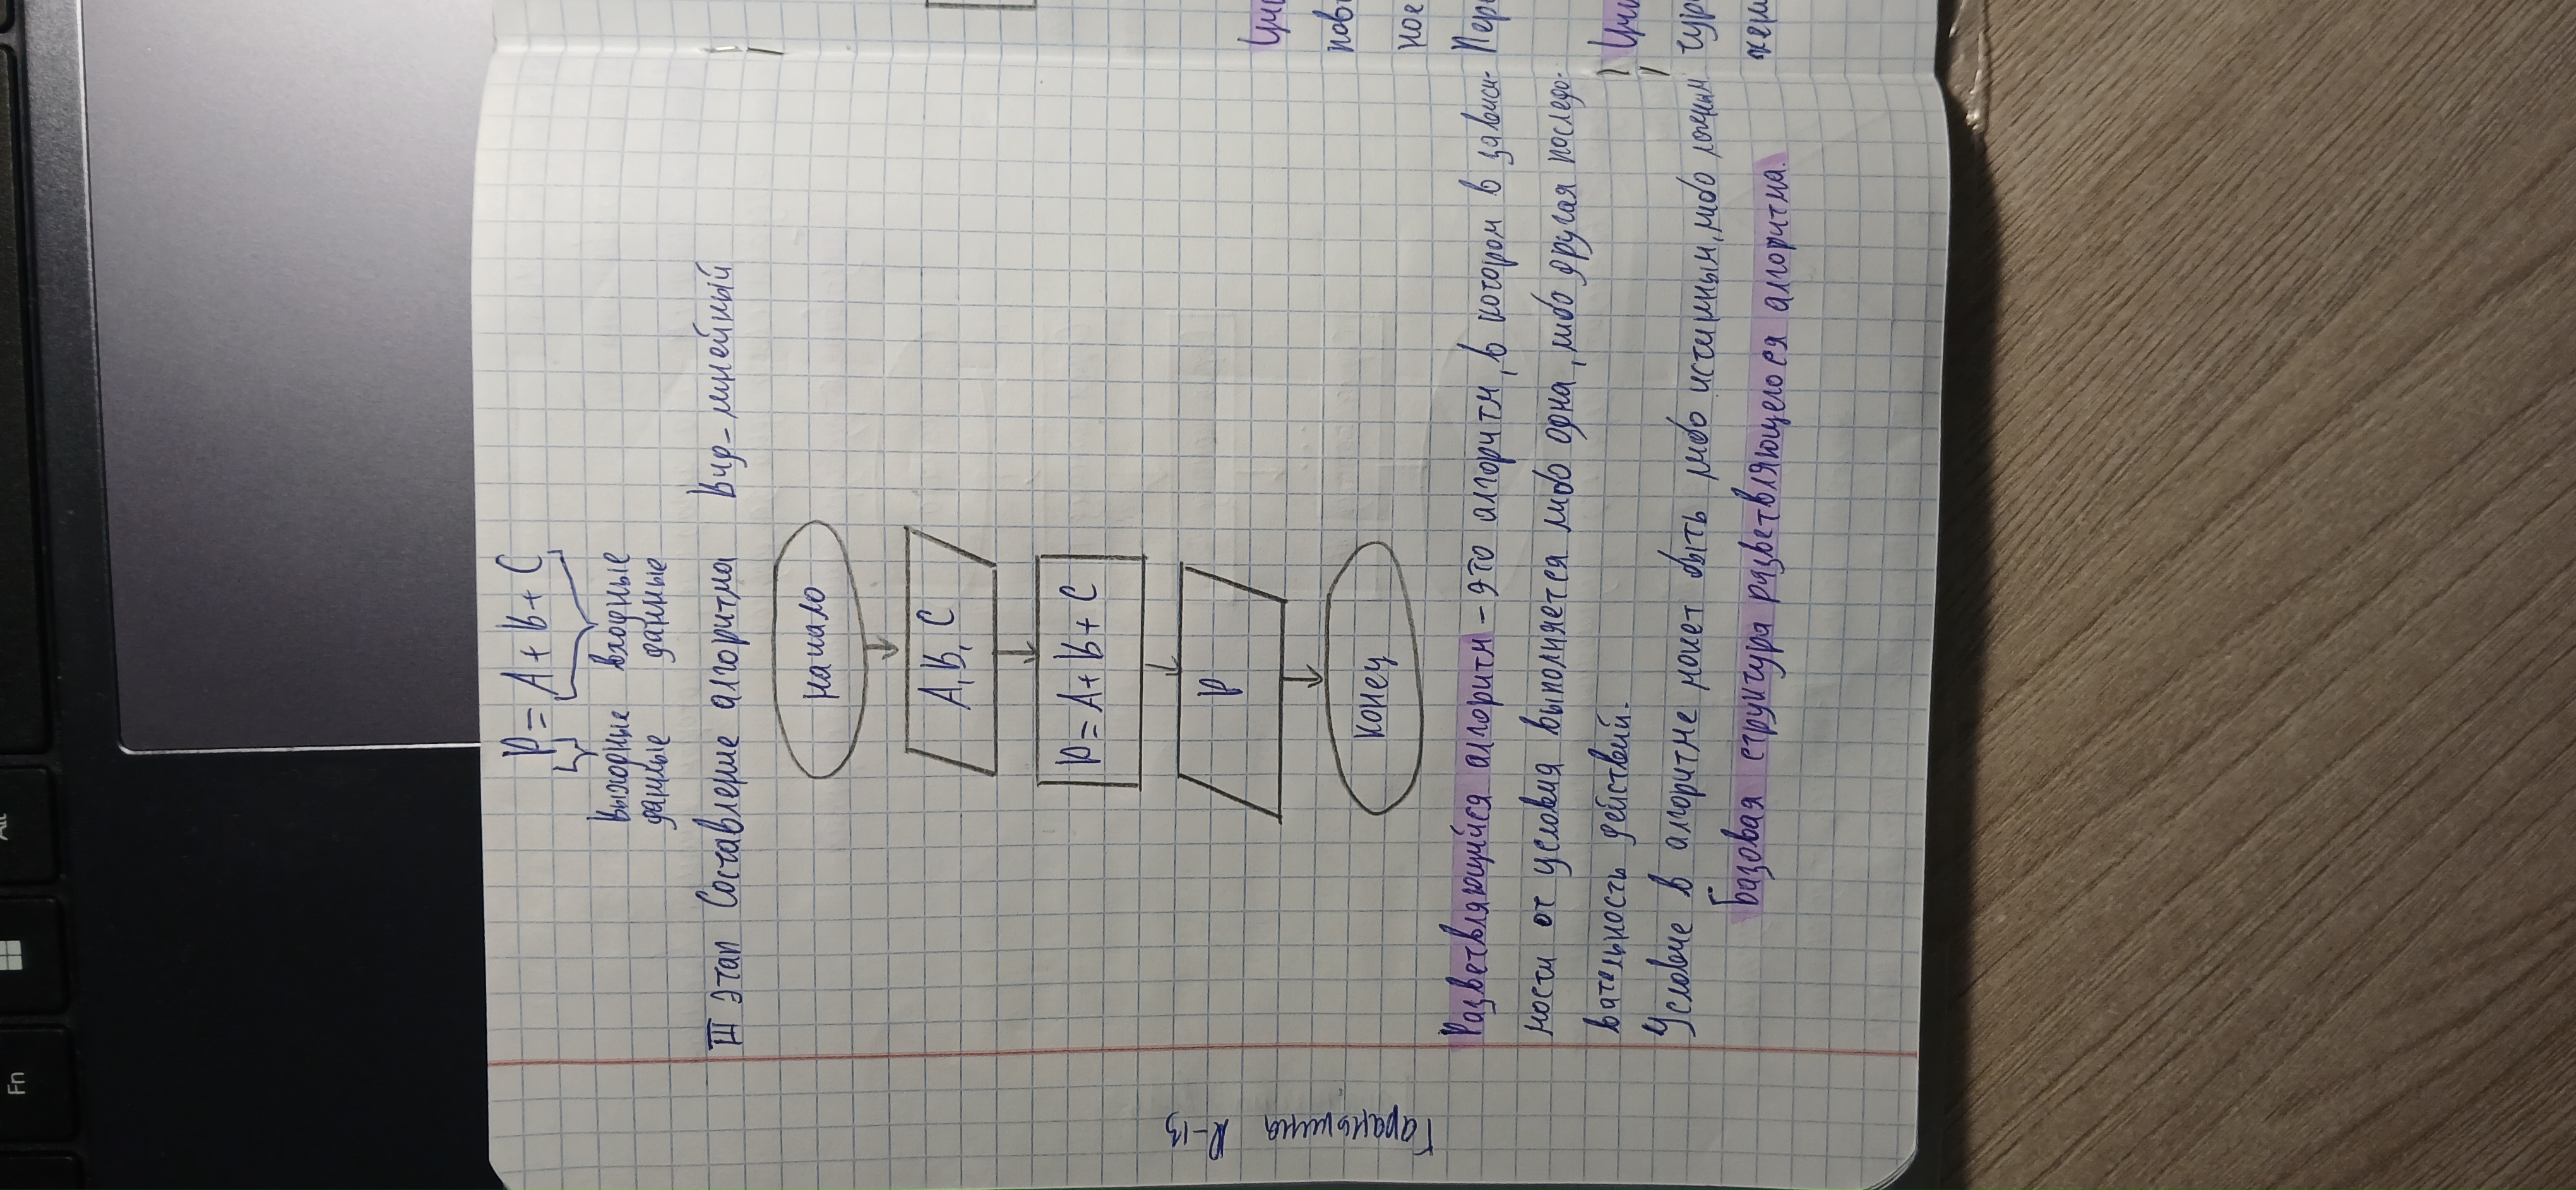 P = A + B + C
выходные входные
данные данные
III этап Составление алгоритма Вид - линейный
начало
A, B, C
P = A + B + C
P
конец
Разветвляющийся алгоритм - это алгоритм, в котором в зависи-
мости от условия выполняется либо одна, либо другая последо-
вательность действий.
Условие в алгоритме может быть либо истинным, либо ложным
Базовая структура разветвляющегося алгоритма.
нов
ное
Пер
Гараньшина
Р-13
Fn
Alt